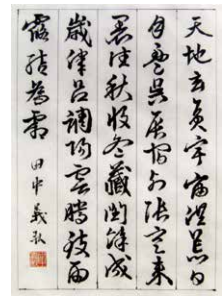 天地玄黄宇宙洪荒日
月盈昃辰宿列張寒来
暑往秋收冬藏閏餘成
歳律呂調陽雲騰致雨
露結為霜 田中義